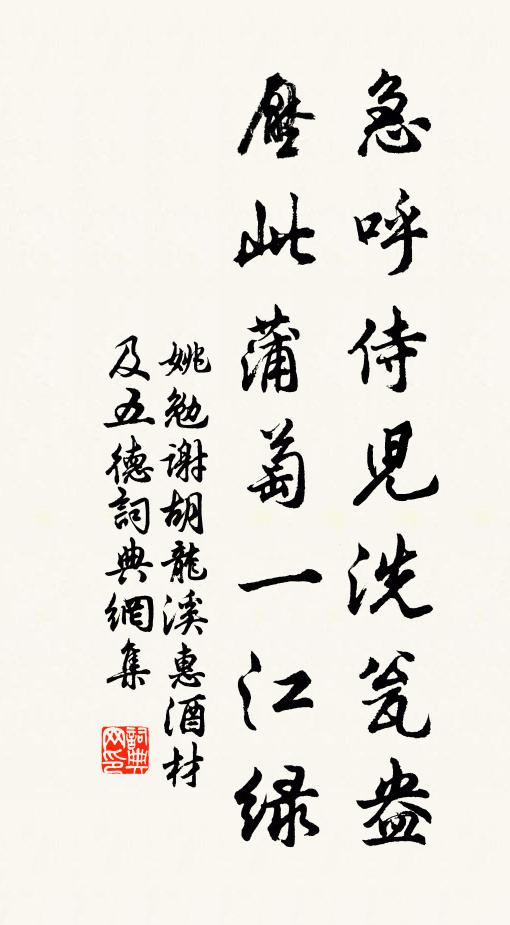 急呼侍児洗瓮盎
壓此蒲萄一江緑
姚勉謝胡龍溪惠酒材
及五德詞典網集
詞典网印